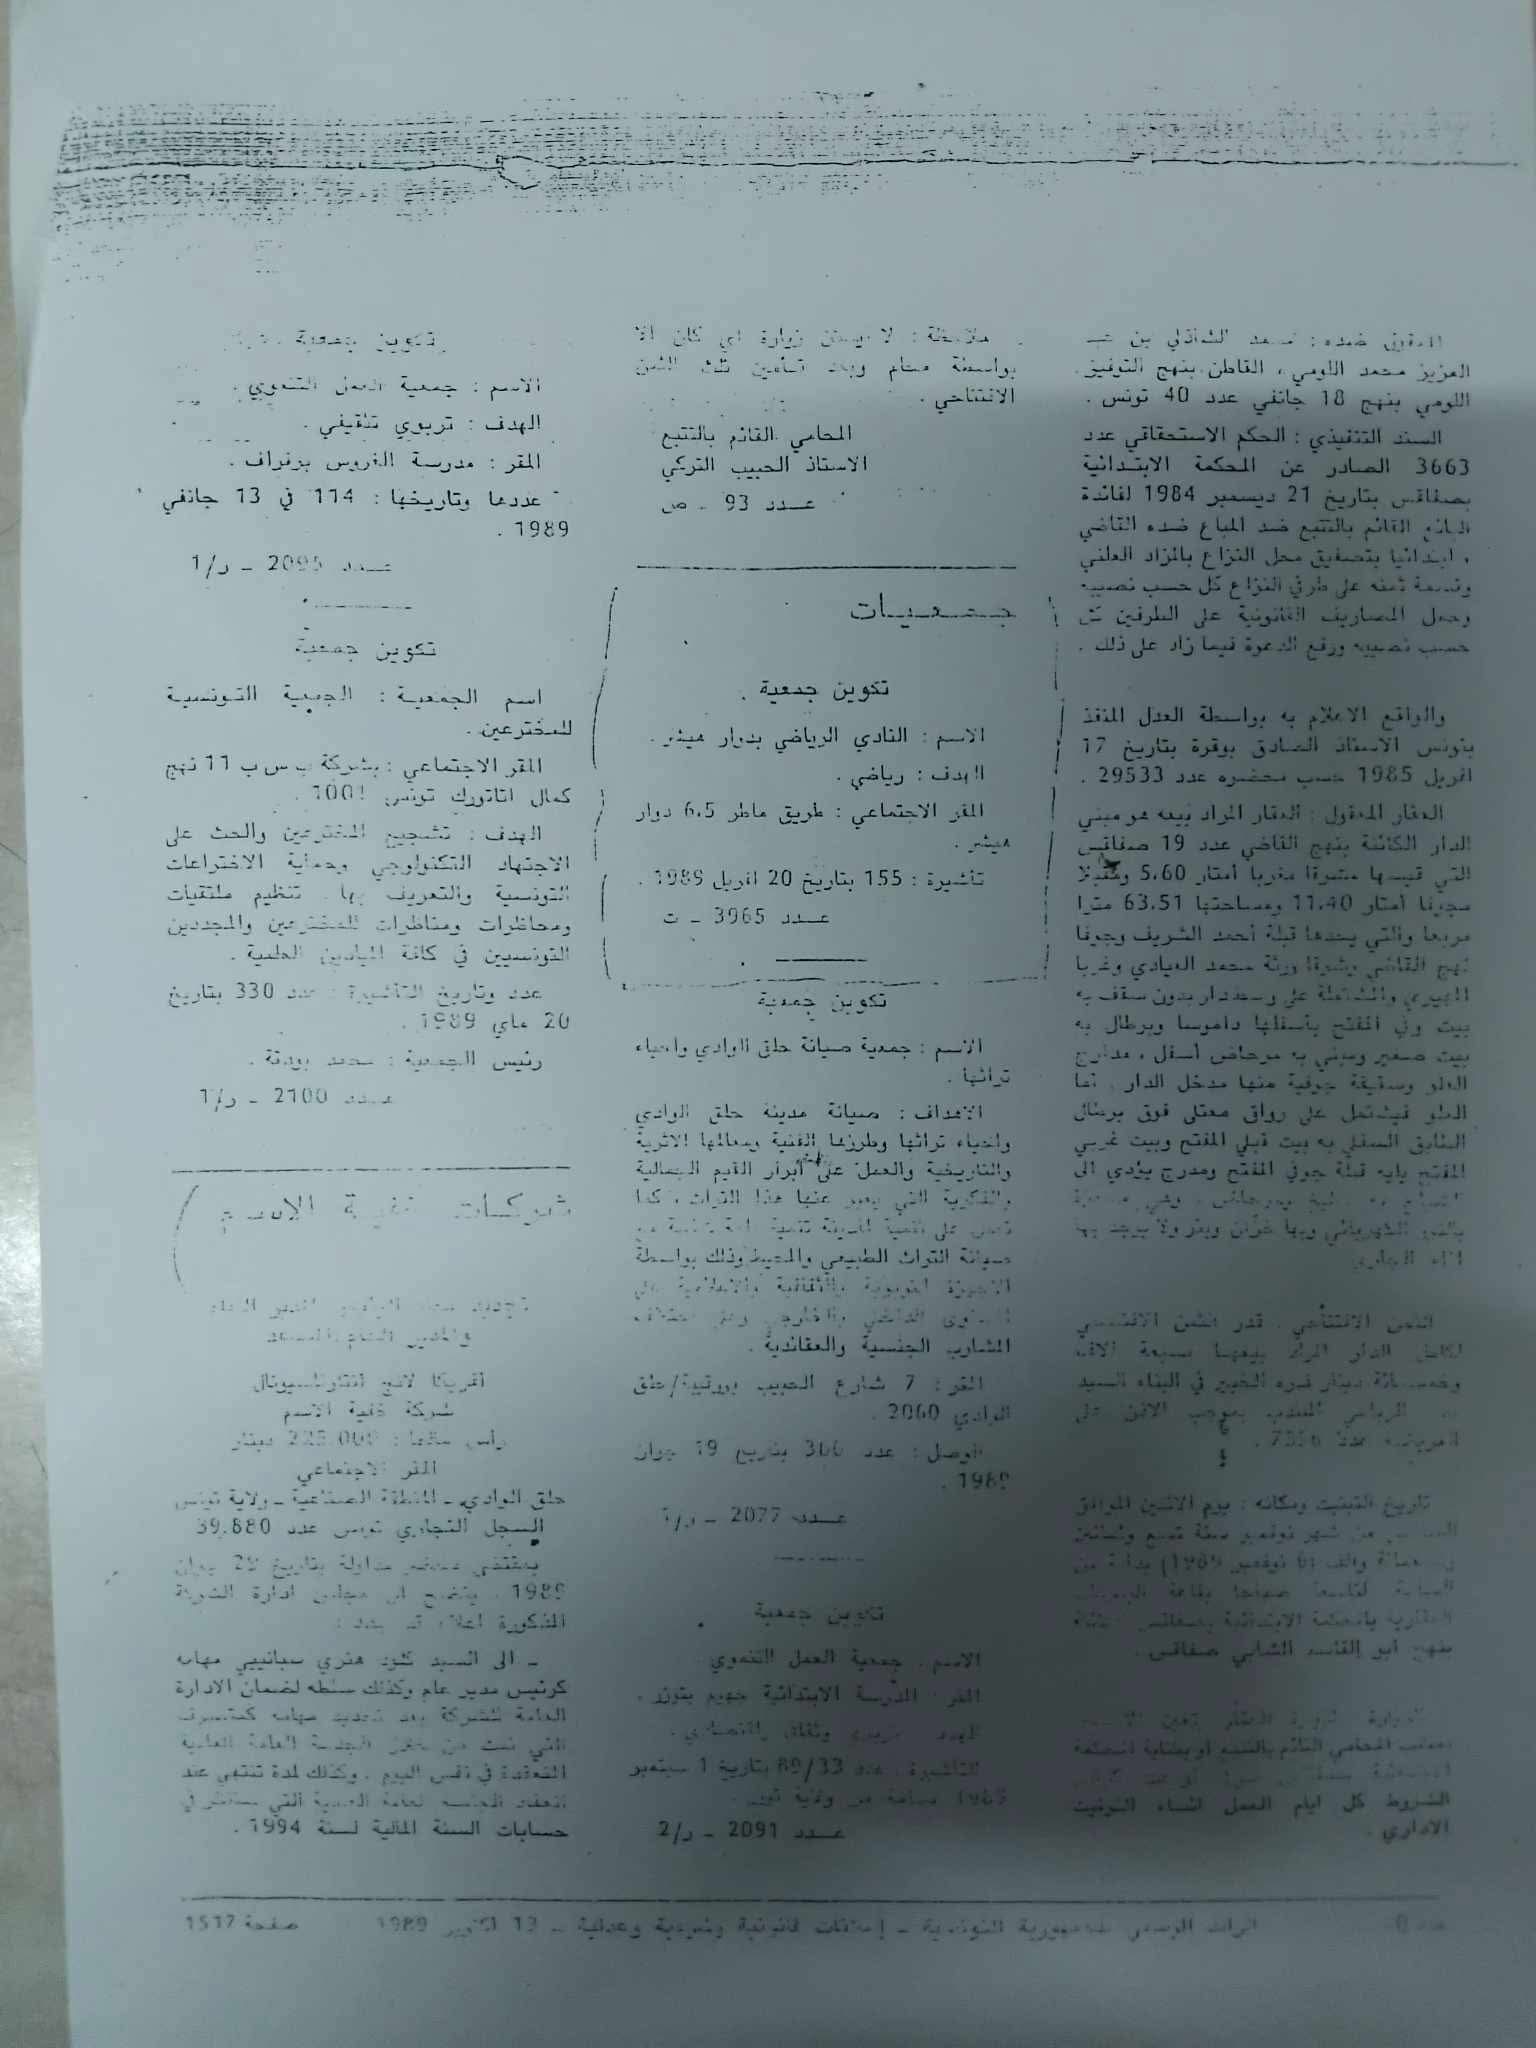 العزيز محمد اللومي ، القاطن بنهج التوفيق
اللومي بنهج 18 جانفي عدد 40 تونس .
السند التنفيذي : الحكم الاستحقاقي عدد
3663 الصادر عن المحكمة الابتدائية
بصفاقس بتاريخ 21 ديسمبر 1984 لفائدة
البائع القائم بالتتبع ضد المباع ضده القاضي
ابتدائيا بتصفيق محل النزاع بالمزاد العلني
وقسمة ثمنه على طرفي النزاع كل حسب نصيبه
وحمل المصاريف القانونية على الطرفين كل
حسب نصيبه ورفع الدعوة فيما زاد على ذلك .
والواقع الاعلام به بواسطة العدل المنفذ
بتونس الاستاذ الصادق بوقرة بتاريخ 17
افريل 1985 حسب محضره عدد 29533 .
العقار المعقول : العقار المراد بيعه هو مبني
الدار الكائنة بنهج القاضي عدد 19 صفاقس
التي قيسها مشرقا مغربا أمتار 5،60 وقبلا
مجوفا أمتار 11،40 ومساحتها 63،51 مترا
مربعا والتي يحدها قبلة أحمد الشريف وجوفا
نهج القاضي وشرقا ورثة محمد العيادي وغربا
المهيري والمشتملة على وسط دار بدون سقف به
بيت وفي المفتح بأسفلها داموسا وبرطال به
بيت صغير ومبني به مرحاض أسفل ، مدارج
العلو وسقيفة جوفية منها مدخل الدار ، أما
العلو فيشتمل على رواق معتلى فوق برطال
الطابق السفلي به بيت قبلي المفتح وبيت غربي
المفتح يليه قبلة جوفي المفتح ومدرج يؤدي الى
بالنور الكهربائي وبها خزان وبئر ولا يوجد بها
الماء الجاري
الثمن الافتتاحي . قدر الثمن الافتتاحي
لكامل الدار المراد بيعها بسبعة الاف
وخمسمائة دينار قدره الخبير في البناء السيد
تاريخ التبتيت ومكانه : يوم الاثنين الموافق
من شهر نوفمبر سنة تسع وثمانين
وتسعمائة والف (6 نوفمبر 1989) بداية من
العقارية بالمحكمة الابتدائية بصفاقس
بنهج أبو القاسم الشابي صفاقس .
بمكتب المحامي القائم بالتتبع أو بكتابة المحكمة
الشروط كل ايام العمل اثناء التوقيت
الاداري .
ملاحظة : لا يمكن زيارة اي كان الا
بواسطة محام وبعد تأمين ثلث الثمن
الافتتاحي .
المحامي القائم بالتتبع
الاستاذ الحبيب التركي
عـدد 93 ـ ص
جـمـعـيـات
تكوين جمعية
الاسم : النادي الرياضي بدوار هيشر .
الهدف : رياضي .
المقر الاجتماعي : طريق ماطر 6،5 دوار
هيشر .
تأشيرة : 155 بتاريخ 20 افريل 1989 .
عـدد 3965 ـ ت
تكوين جمعية
الاسم : جمعية صيانة حلق الوادي واحياء
تراثها .
الاهداف : صيانة مدينة حلق الوادي
واحياء تراثها وطرزها الفنية ومعالمها الاثرية
والتاريخية والعمل على ابراز القيم الجمالية
والفكرية التي يعبر عنها هذا التراث ، كما
صيانة التراث الطبيعي والمحيط وذلك بواسطة
الاجهزة التربوية والثقافية والاعلامية على
المستوى الداخلي والخارجي وعلى اختلاف
المشارب الجنسية والعقائدية .
المقر : 7 شارع الحبيب بورقيبة/حلق
الوادي 2060 .
الوصل : عدد 366 بتاريخ 19 جوان
1989 .
عـدد 2077 ـ ر/1
تكوين جمعية
الاسم . جمعية العمل التنموي
المقر المدرسة الابتدائية حهيم بتوزر .
الهدف تربوي وثقافي واقتصادي .
التأشيرة . عدد 89/33 بتاريخ 1 سبتمبر
1989
عـدد 2091 ـ ر/2
تكوين جمعية
الاسم : جمعية العمل التنموي .
الهدف : تربوي تثقيفي .
المقر : مدرسة الغروس بزفزاف .
عددها وتاريخها : 114 في 13 جانفي
1989 .
عـدد 2095 ـ ر/1
تكوين جمعية
اسم الجمعية : الجمعية التونسية
للمخترعين .
المقر الاجتماعي : بشركة ب س ب 11 نهج
كمال اتاتورك تونس 1001 .
الهدف : تشجيع المخترعين والحث على
الاجتهاد التكنولوجي وحماية الاختراعات
التونسية والتعريف بها . تنظيم ملتقيات
ومحاظرات ومناظرات للمخترعين والمجددين
التونسيين في كافة الميادين العلمية .
عدد وتاريخ التأشيرة : عدد 330 بتاريخ
20 ماي 1989 .
رئيس الجمعية : محمد بودقة .
عـدد 2100 ـ ر/1
شركات خفية الاسم
تجديد مهام الرئيس المدير العام
والمدير العام المساعد
أفريكا لانج انترناسيونال
شركة خفية الاسم
رأس مالها : 225.000 دينار
المقر الاجتماعي
حلق الوادي ـ المنطقة الصناعية ـ ولاية تونس
السجل التجاري تونس عدد 39.880
بمقتضى محضر مداولة بتاريخ 29 جوان
1989 ، يتضح ان مجلس ادارة الشركة
المذكورة اعلاه قد جدد :
ـ الى السيد كلود هنري سبانييي مهامه
كرئيس مدير عام وكذلك سلطه لضمان الادارة
العامة للشركة بعد تجديد مهامه كمتصرف
التي تمت من طرف الجلسة العامة العادية
المنعقدة في نفس اليوم . وكذلك لمدة تنتهي عند
انعقاد الجلسة العامة العادية التي ستنظر في
حسابات السنة المالية لسنة 1994 .
الرائد الرسمي للجمهورية التونسية ـ إعلانات قانونية وشرعية وعدلية ـ 13 اكتوبر 1989 صفحة 1517